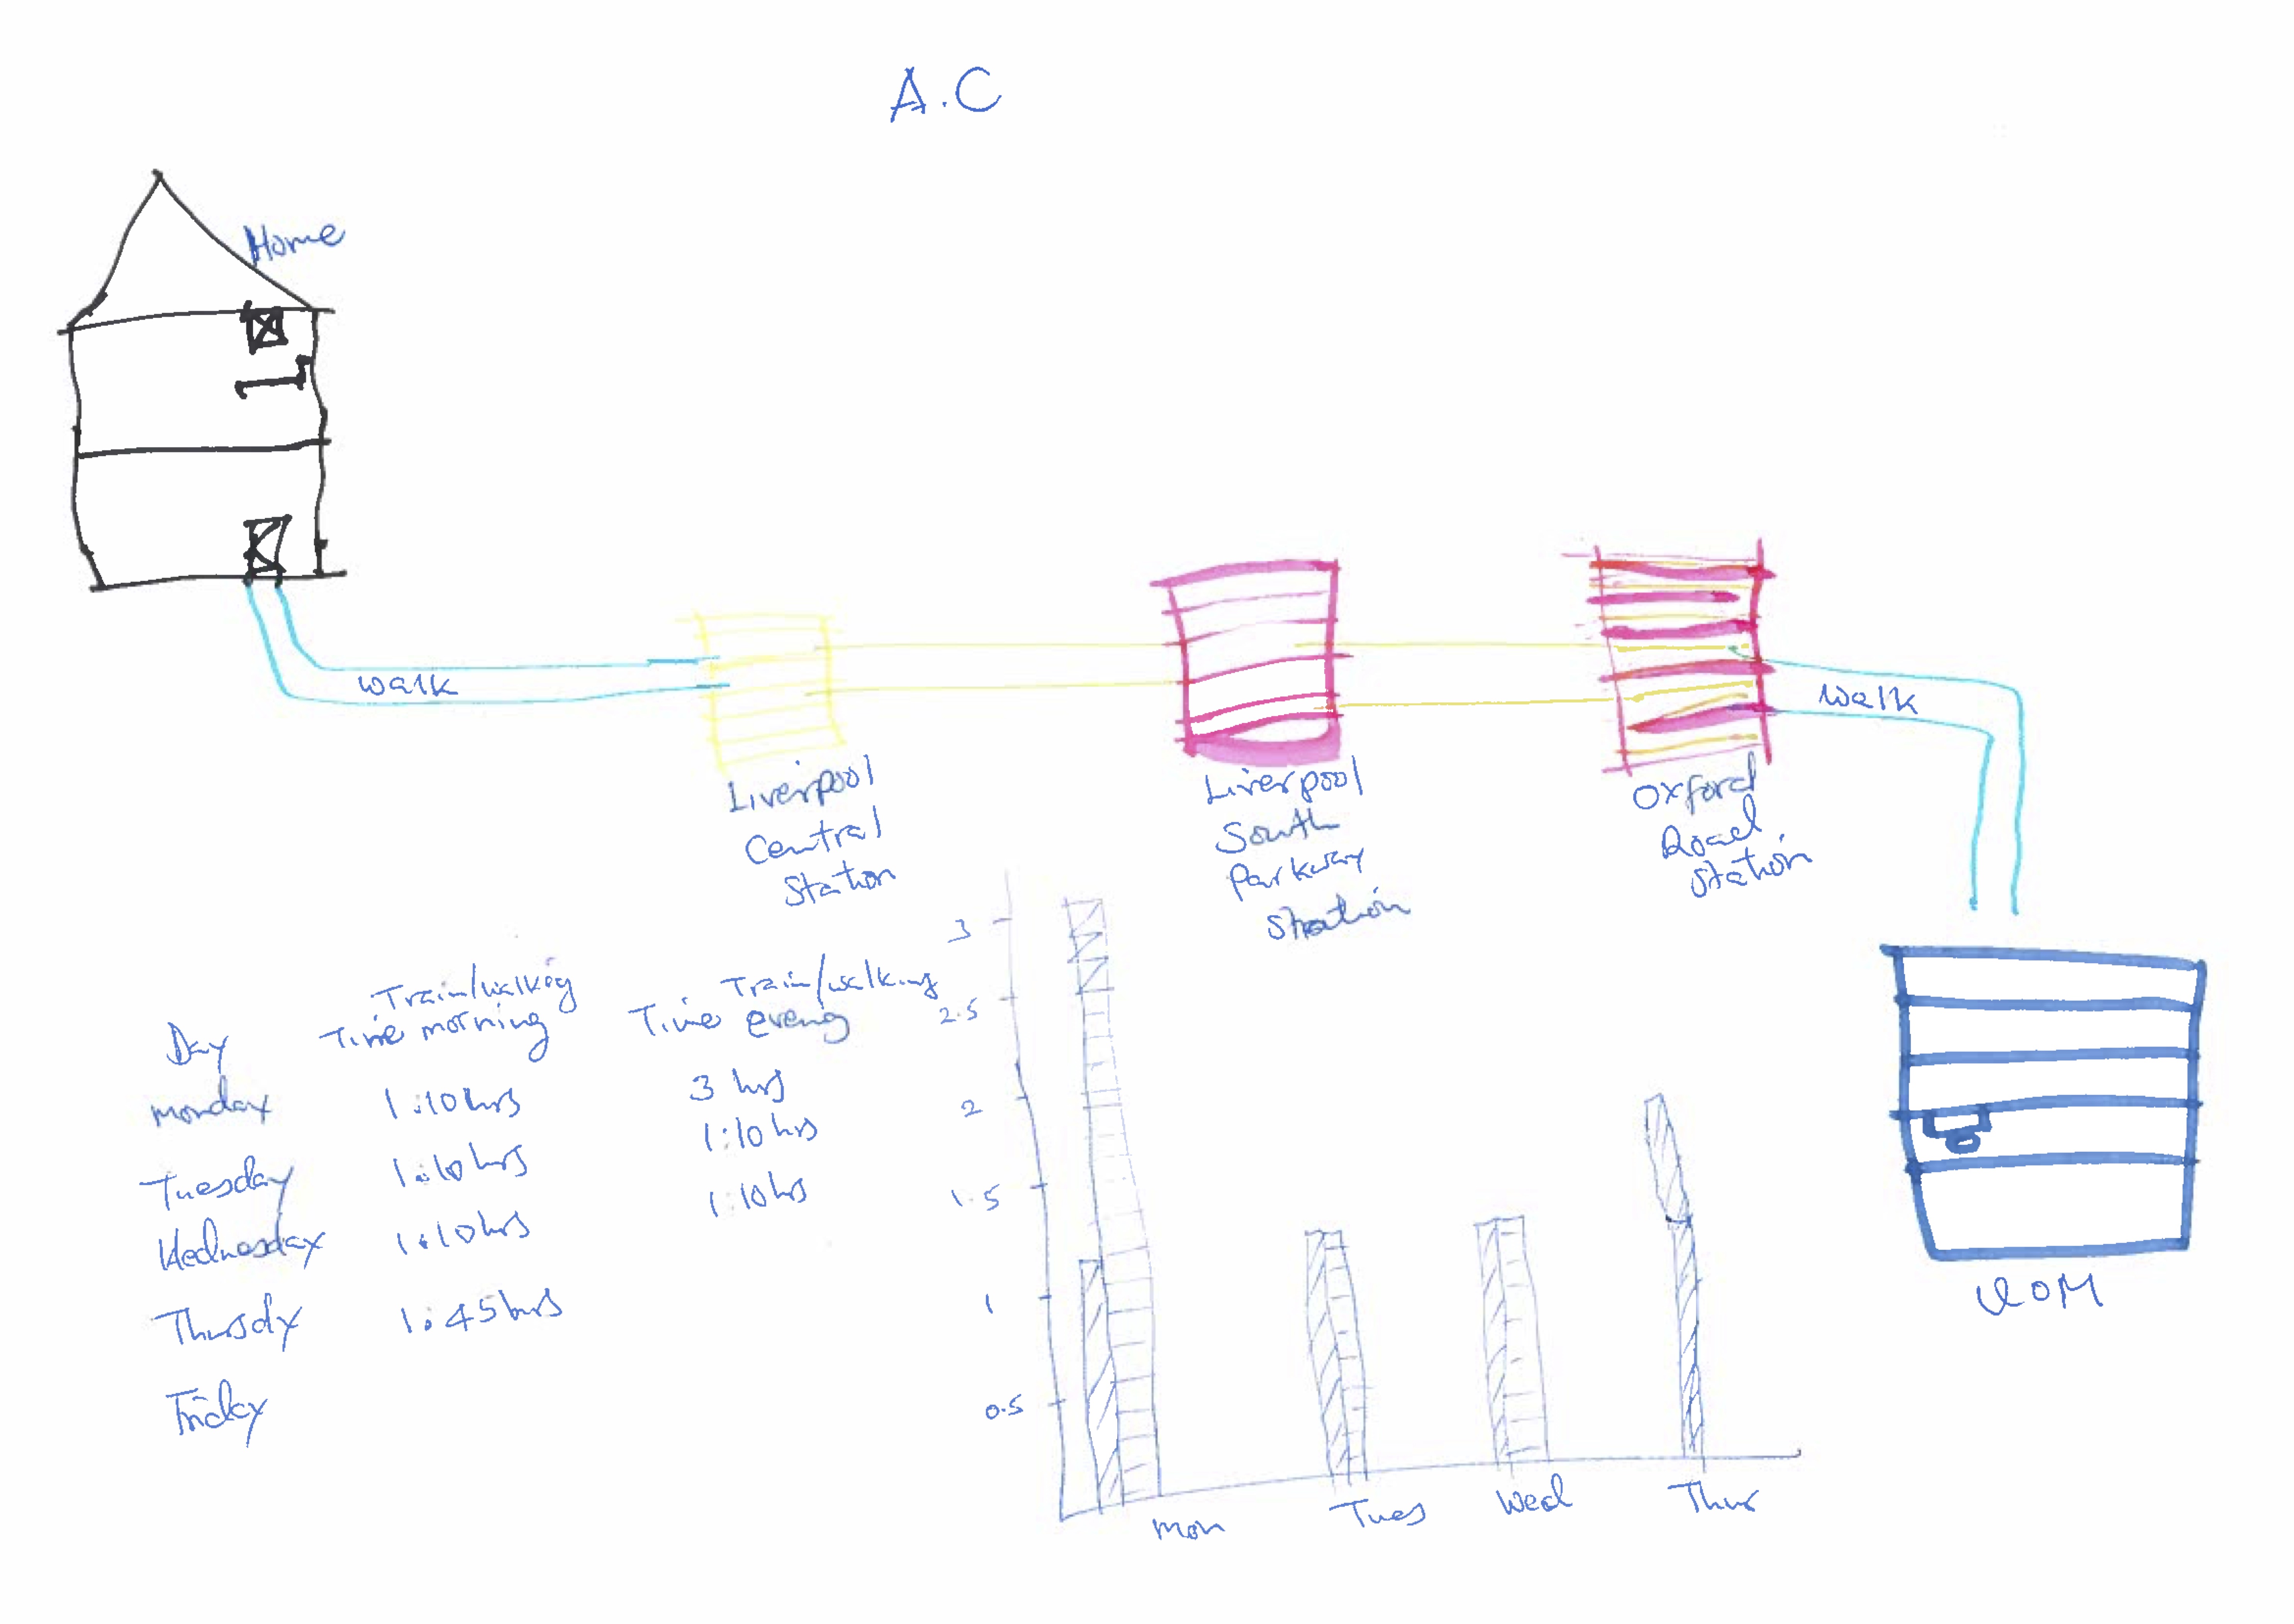 A.C
Home
walk
walk
Liverpool
Central
Station
Liverpool
South
Parkway
Station
Oxford
Road
Station
UOM
Day
Train/walking
Time morning
Train/walking
Time eveng
Monday 1:10hrs 3 hrs
Tuesday 1:10hrs 1:10hrs
Wednesday 1:10hrs 1:10hrs
Thursdy 1:45hrs
Friday
3
2.5
2
1.5
1
0.5
Mon Tues Wed Thur